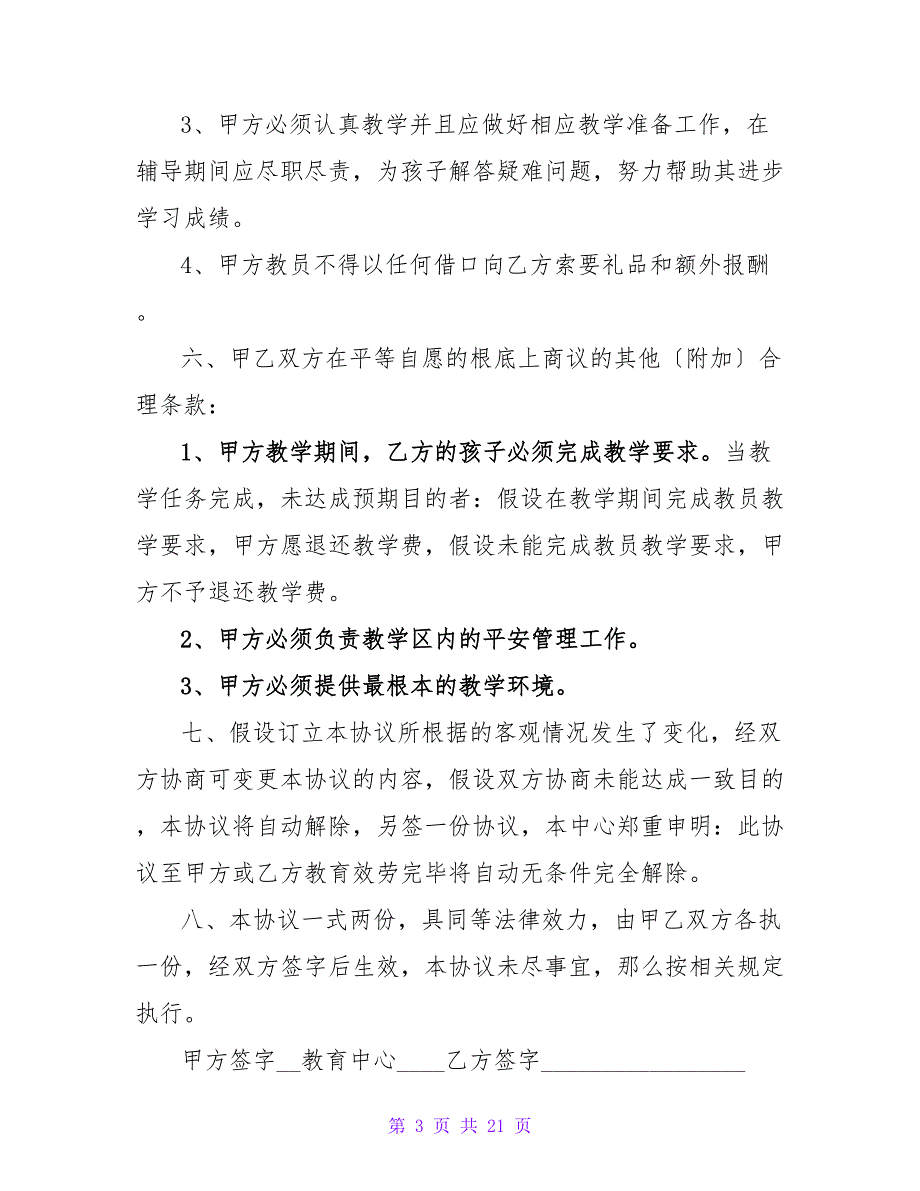 3、甲方必须认真教学并且应做好相应教学准备工作，在
辅导期间应尽职尽责，为孩子解答疑难问题，努力帮助其进步
学习成绩。
4、甲方教员不得以任何借口向乙方索要礼品和额外报酬
。
六、甲乙双方在平等自愿的根底上商议的其他〔附加〕合
理条款：
1、甲方教学期间，乙方的孩子必须完成教学要求。当教
学任务完成，未达成预期目的者：假设在教学期间完成教员教
学要求，甲方愿退还教学费，假设未能完成教员教学要求，甲
方不予退还教学费。
2、甲方必须负责教学区内的平安管理工作。
3、甲方必须提供最根本的教学环境。
七、假设订立本协议所根据的客观情况发生了变化，经双
方协商可变更本协议的内容，假设双方协商未能达成一致目的
，本协议将自动解除，另签一份协议，本中心郑重申明：此协
议至甲方或乙方教育效劳完毕将自动无条件完全解除。
八、本协议一式两份，具同等法律效力，由甲乙双方各执
一份，经双方签字后生效，本协议未尽事宜，那么按相关规定
执行。
甲方签字__教育中心____乙方签字_________________
第 3 页 共 21 页